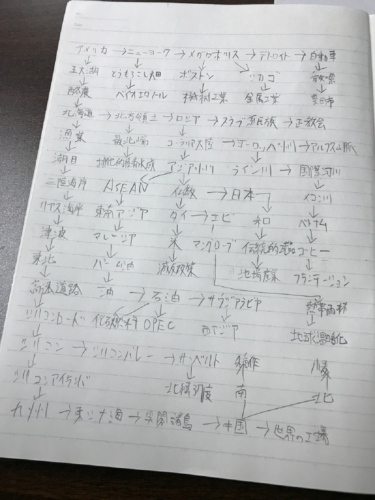 アメリカ → ニューヨーク → メガロポリス → デトロイト → 自動車
五大湖 とうもろこし畑 ボストン シカゴ
酪農 金属工業 豊田市
北海道 → 北方領土 → ロシア → スラブ民族 → 正教会
漁業 最北端 ユーラシア大陸 → ヨーロッパ州 → アルプス山脈
潮目 アジア州 ライン川 → 国際河川
三陸海岸 ASEAN 仏教 → 日本 メコン川
リアス海岸 東南アジア タイ → エビ 和 ベトナム
津波 マレーシア 米 マングローブ 伝統的 コーヒー
東北 パーム油 減反政策 地場産業 プランテーション
高速道路 油 → 石油 → サウジアラビア
シリコンロード 化石燃料 OPEC 西アジア 地球温暖化
シリコン → シリコンバレー → サンベルト 稲作
シリコンアイランド 北緯37度 南 北
九州 → 東シナ海 → 尖閣諸島 → 中国 → 世界の工場